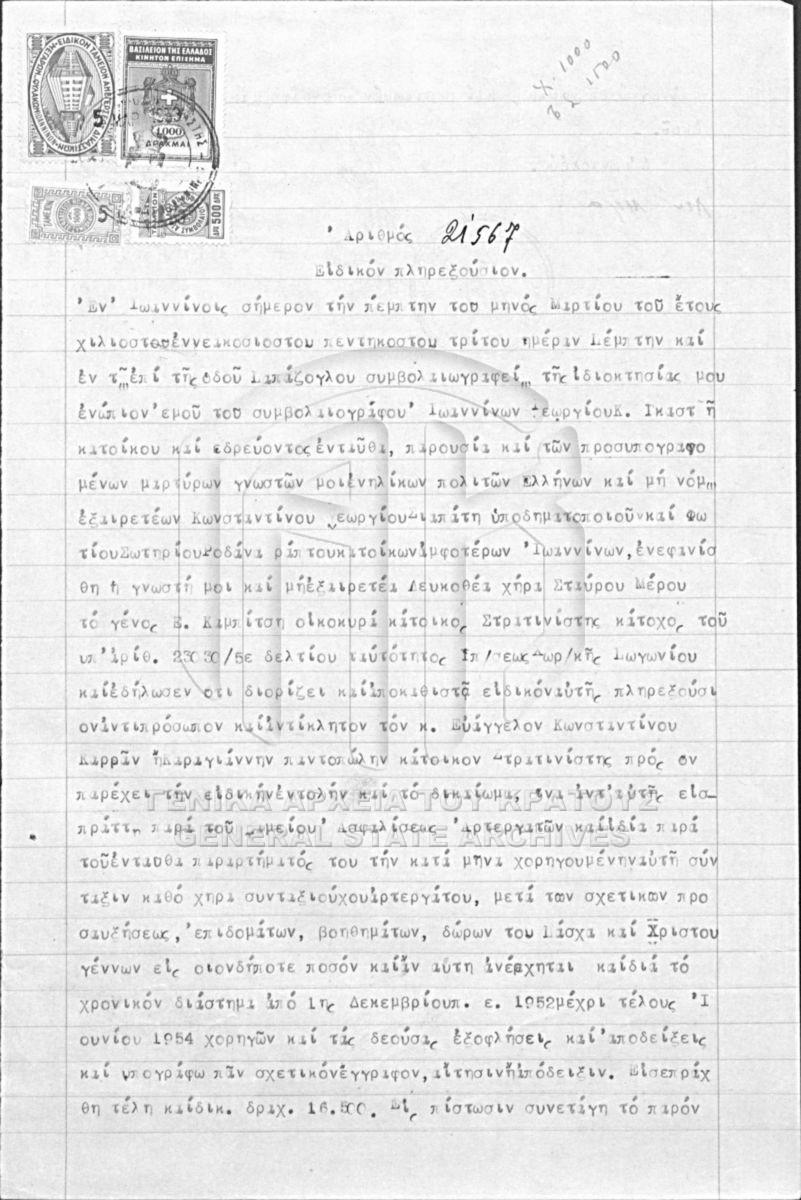 ΒΑΣΙΛΕΙΟΝ ΤΗΣ ΕΛΛΑΔΟΣ
ΚΙΝΗΤΟΝ ΕΠΙΣΗΜΑ
1000
ΔΡΑΧΜΑΙ
Χ. 1000
Ἀριθμός 21567
Εἰδικόν πληρεξούσιον.
Ἐν Ἰωαννίνοις σήμερον τήν πέμπτην του μηνός Μαρτίου τοῦ ἔτους
χιλιοστουἐννεακοσιοστου πεντηκοστου τρίτου ημέραν Πέμπτην καί
ἐν τῷ ἐπί τῆς ὁδοῦ συμβολαιωγραφείῳ τῆς ἰδιοκτησίας μου
ἐνώπιον ἐμοῦ του συμβολαιογράφου Ἰωαννίνων ΓεωργίουΚ.
κατοίκου καί εδρεύοντος ἐνταῦθα, παρουσία καί τῶν προσυπογραφο
μένων μαρτύρων γνωστῶν μοι ἐνηλίκων πολιτῶν Ελλήνων καί μή νόμῳ
ἐξαιρετέων Κωνσταντίνου Γεωργίου ὑποδηματοποιοῦ καί Φω
τίου Σωτηρίου ράπτου κατοίκων ἀμφοτέρων Ἰωαννίνων, ἐνεφανίσ
θη ἡ γνωστή μοι καί μή ἐξαιρετέα Λευκοθέα χήρα Σταύρου Μέρου
τό γένος Ε. Καμπίτση οἰκοκυρά κάτοικος Στρατινίστης κάτοχος τοῦ
υπ'ἀριθ. 23030/52 δελτίου ταὐτότητος Υπ/σεως Χωρ/κῆς Πωγωνίου
καί ἐδήλωσεν οτι διορίζει καί ἀποκαθιστᾶ εἰδικόν αὐτῆς πληρεξούσι
ον ἀντιπρόσωπον καί ἀντίκλητον τόν κ. Εὐάγγελον Κωνσταντίνου
Καρρᾶν ἤ Καραγιάννην παντοπώλην κάτοικον Στρατινίστης πρός ον
παρέχει τήν εἰδικήν ἐντολήν καί τό δικαίωμα, ἵνα ἀντ'αὐτῆς εἰσ-
πράττῃ παρά τοῦ Ταμείου Ἀσφαλίσεως Ἀρτεργατῶν καί ἰδία παρά
τοῦ ἐνταυθα παραρτήματός του τήν κατά μῆνα χορηγουμένην αὐτῇ σύν
ταξιν καθό χήρα συνταξιούχου ἀρτεργάτου, μετά των σχετικων προ
σαυξήσεως, ἐπιδομάτων, βοηθημάτων, δώρων του Πάσχα καί Χριστου
γέννων εἰς οιονδήποτε ποσόν καί ἄν αὕτη ἀνέρχηται καί διά τό
χρονικόν διάστημα ἀπό 1ης Δεκεμβρίου π. ε. 1952 μέχρι τέλους Ἰ
ουνίου 1954 χορηγῶν καί τάς δεούσας ἐξοφλήσεις καί ἀποδείξεις
καί υπογράφω πᾶν σχετικόν ἔγγραφον, αἴτησιν ἤ ἀπόδειξιν. Εἰσεπράχ
θη τέλη καί δικ. δραχ. 16.500. Εἰς πίστωσιν συνετάγη τό παρόν
ΓΕΝΙΚΑ ΑΡΧΕΙΑ ΤΟΥ ΚΡΑΤΟΥΣ
GENERAL STATE ARCHIVES